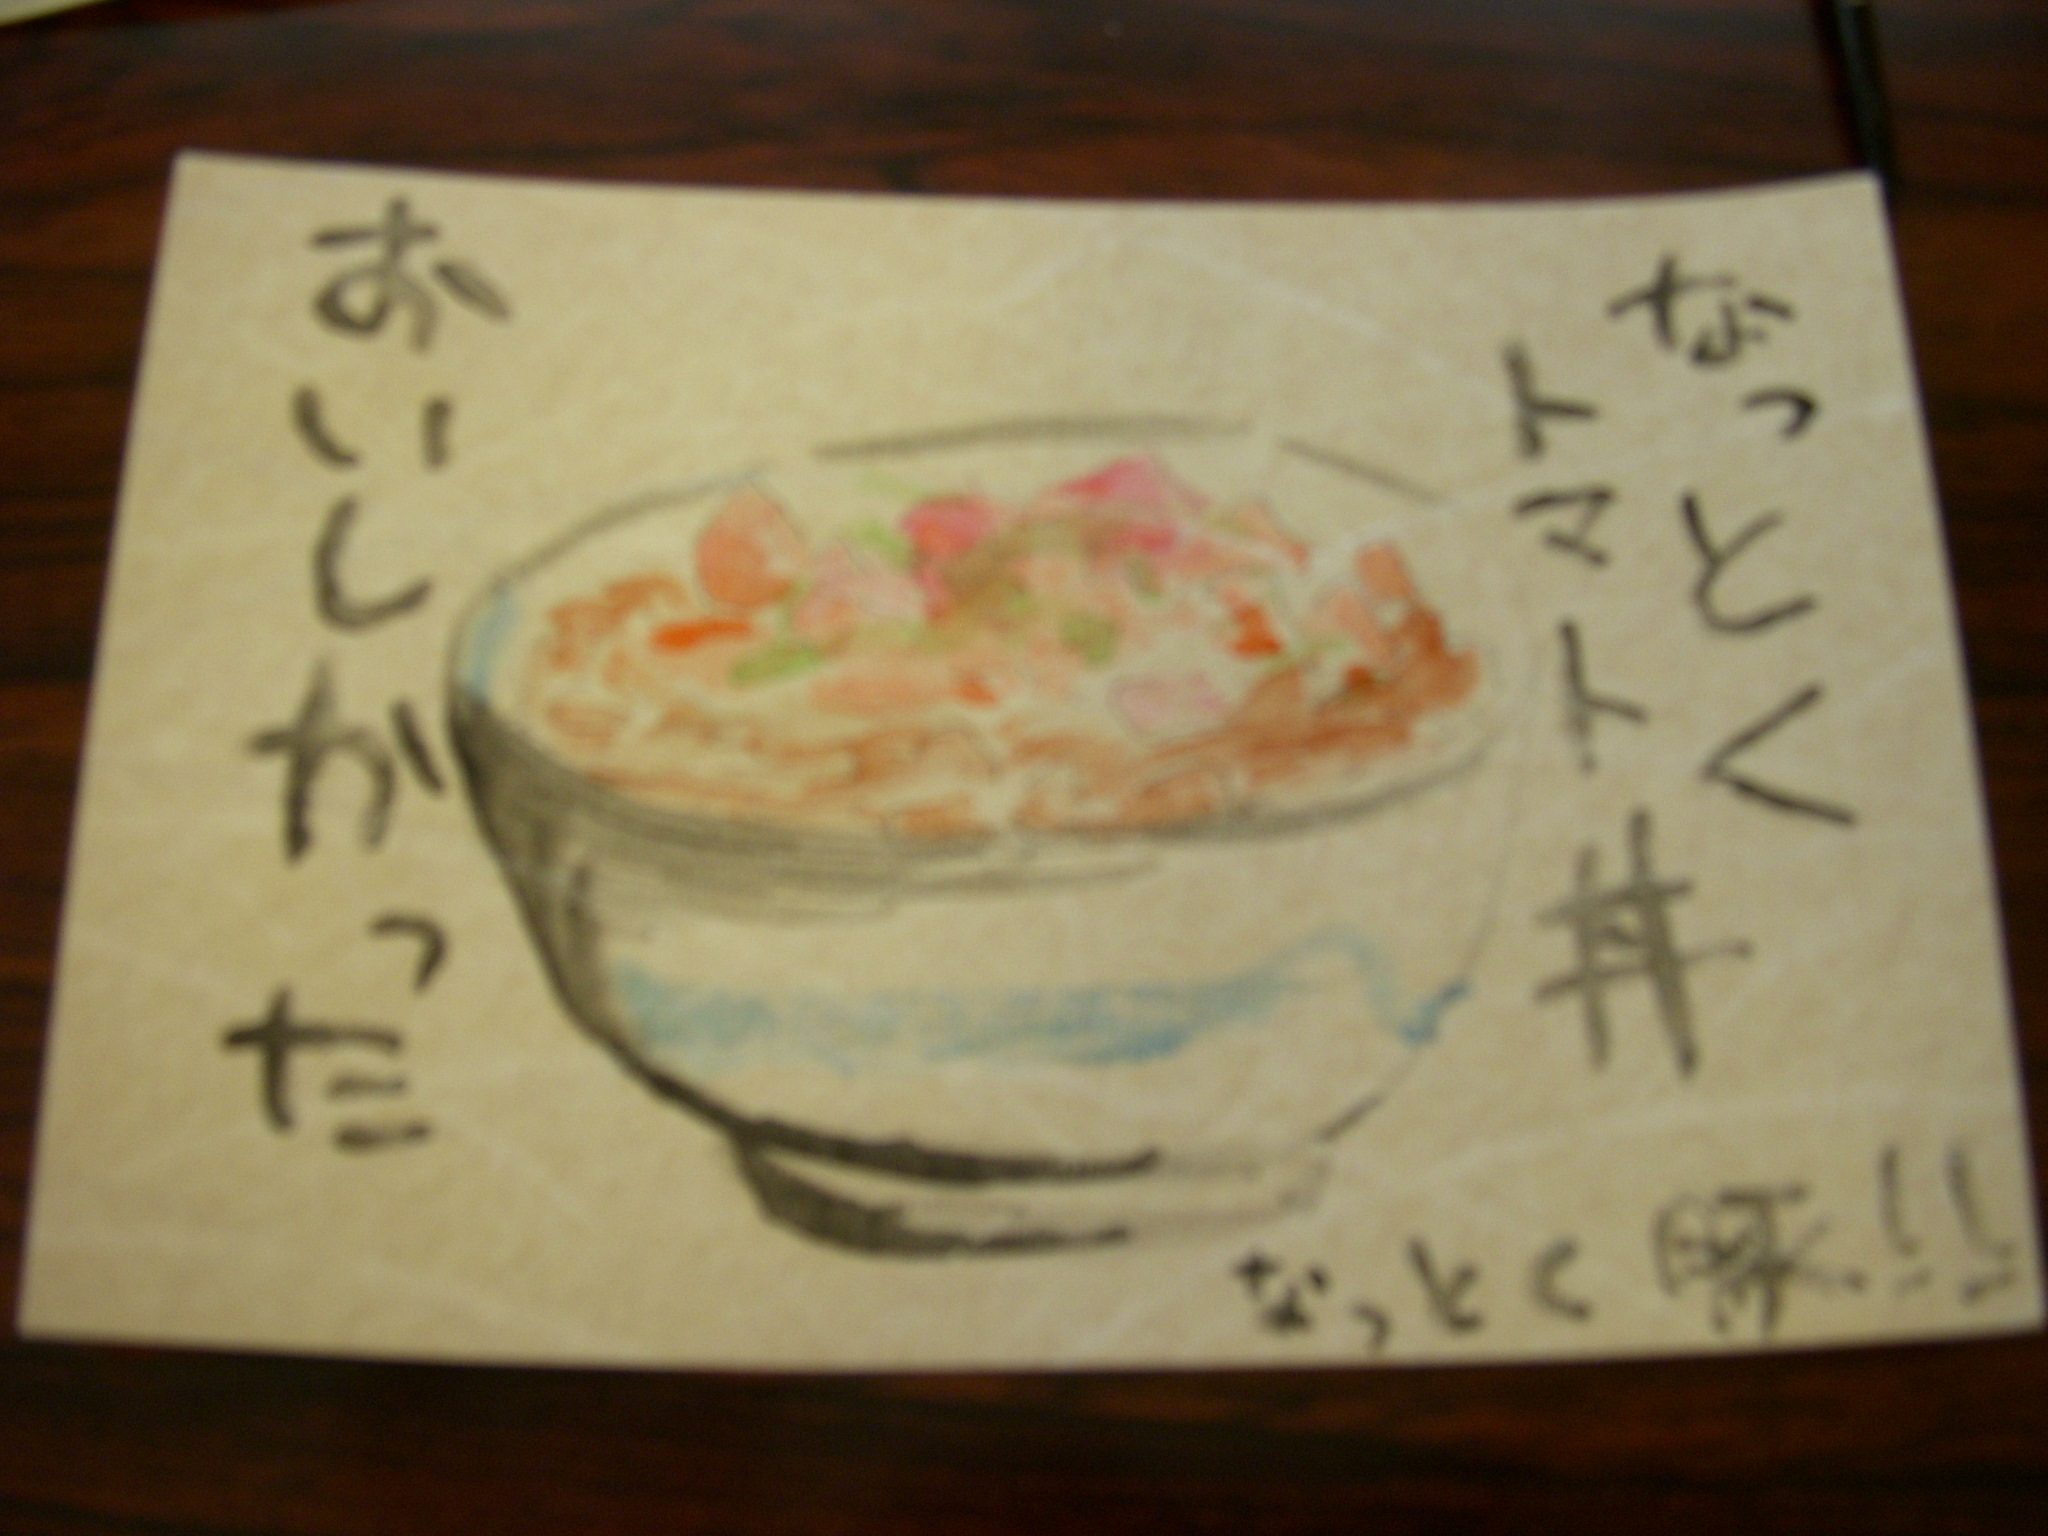 なっとく
トマト丼
おいしかった
なっとく豚!!